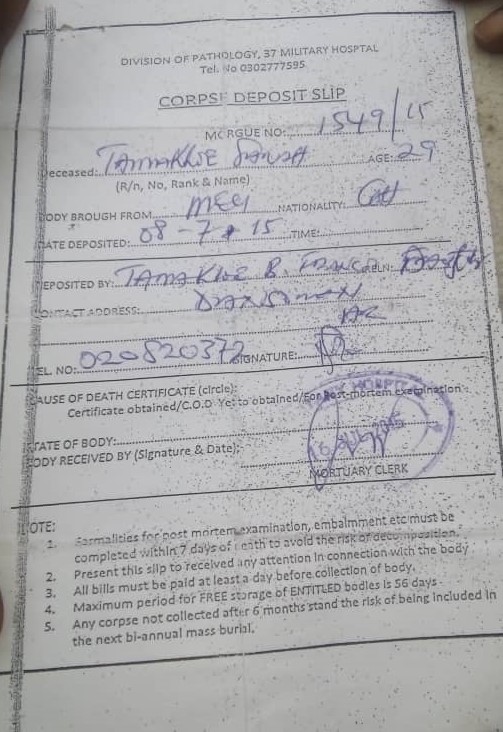 DIVISION OF PATHOLOGY, 37 MILITARY HOSPTAL
Tel. No 0302777595
CORPSE DEPOSIT SLIP
MORGUE NO: 1549/15
Deceased: TAMAKLOE AGE: 29
(R/n, No, Rank & Name)
BODY BROUGH FROM NATIONALITY: GH
DATE DEPOSITED: 08-7-15 TIME:
DEPOSITED BY: TAMAKLOE B. RELN:
CONTACT ADDRESS: DANSOMAN
TEL. NO: 020820372 SIGNATURE:
CAUSE OF DEATH CERTIFICATE (circle):
Certificate obtained/C.O.D Yet to obtained/For Post-mortem examination
STATE OF BODY:
BODY RECEIVED BY (Signature & Date):
MORTUARY CLERK
NOTE:
1. Formalities for post mortem examination, embalment etc must be
completed within 7 days of death to avoid the risk of decomposition.
2. Present this slip to received any attention in connection with the body
3. All bills must be paid at least a day before collection of body.
4. Maximum period for FREE storage of ENTITLED bodies is 56 days
5. Any corpse not collected after 6 months stand the risk of being included in
the next bi-annual mass burial.